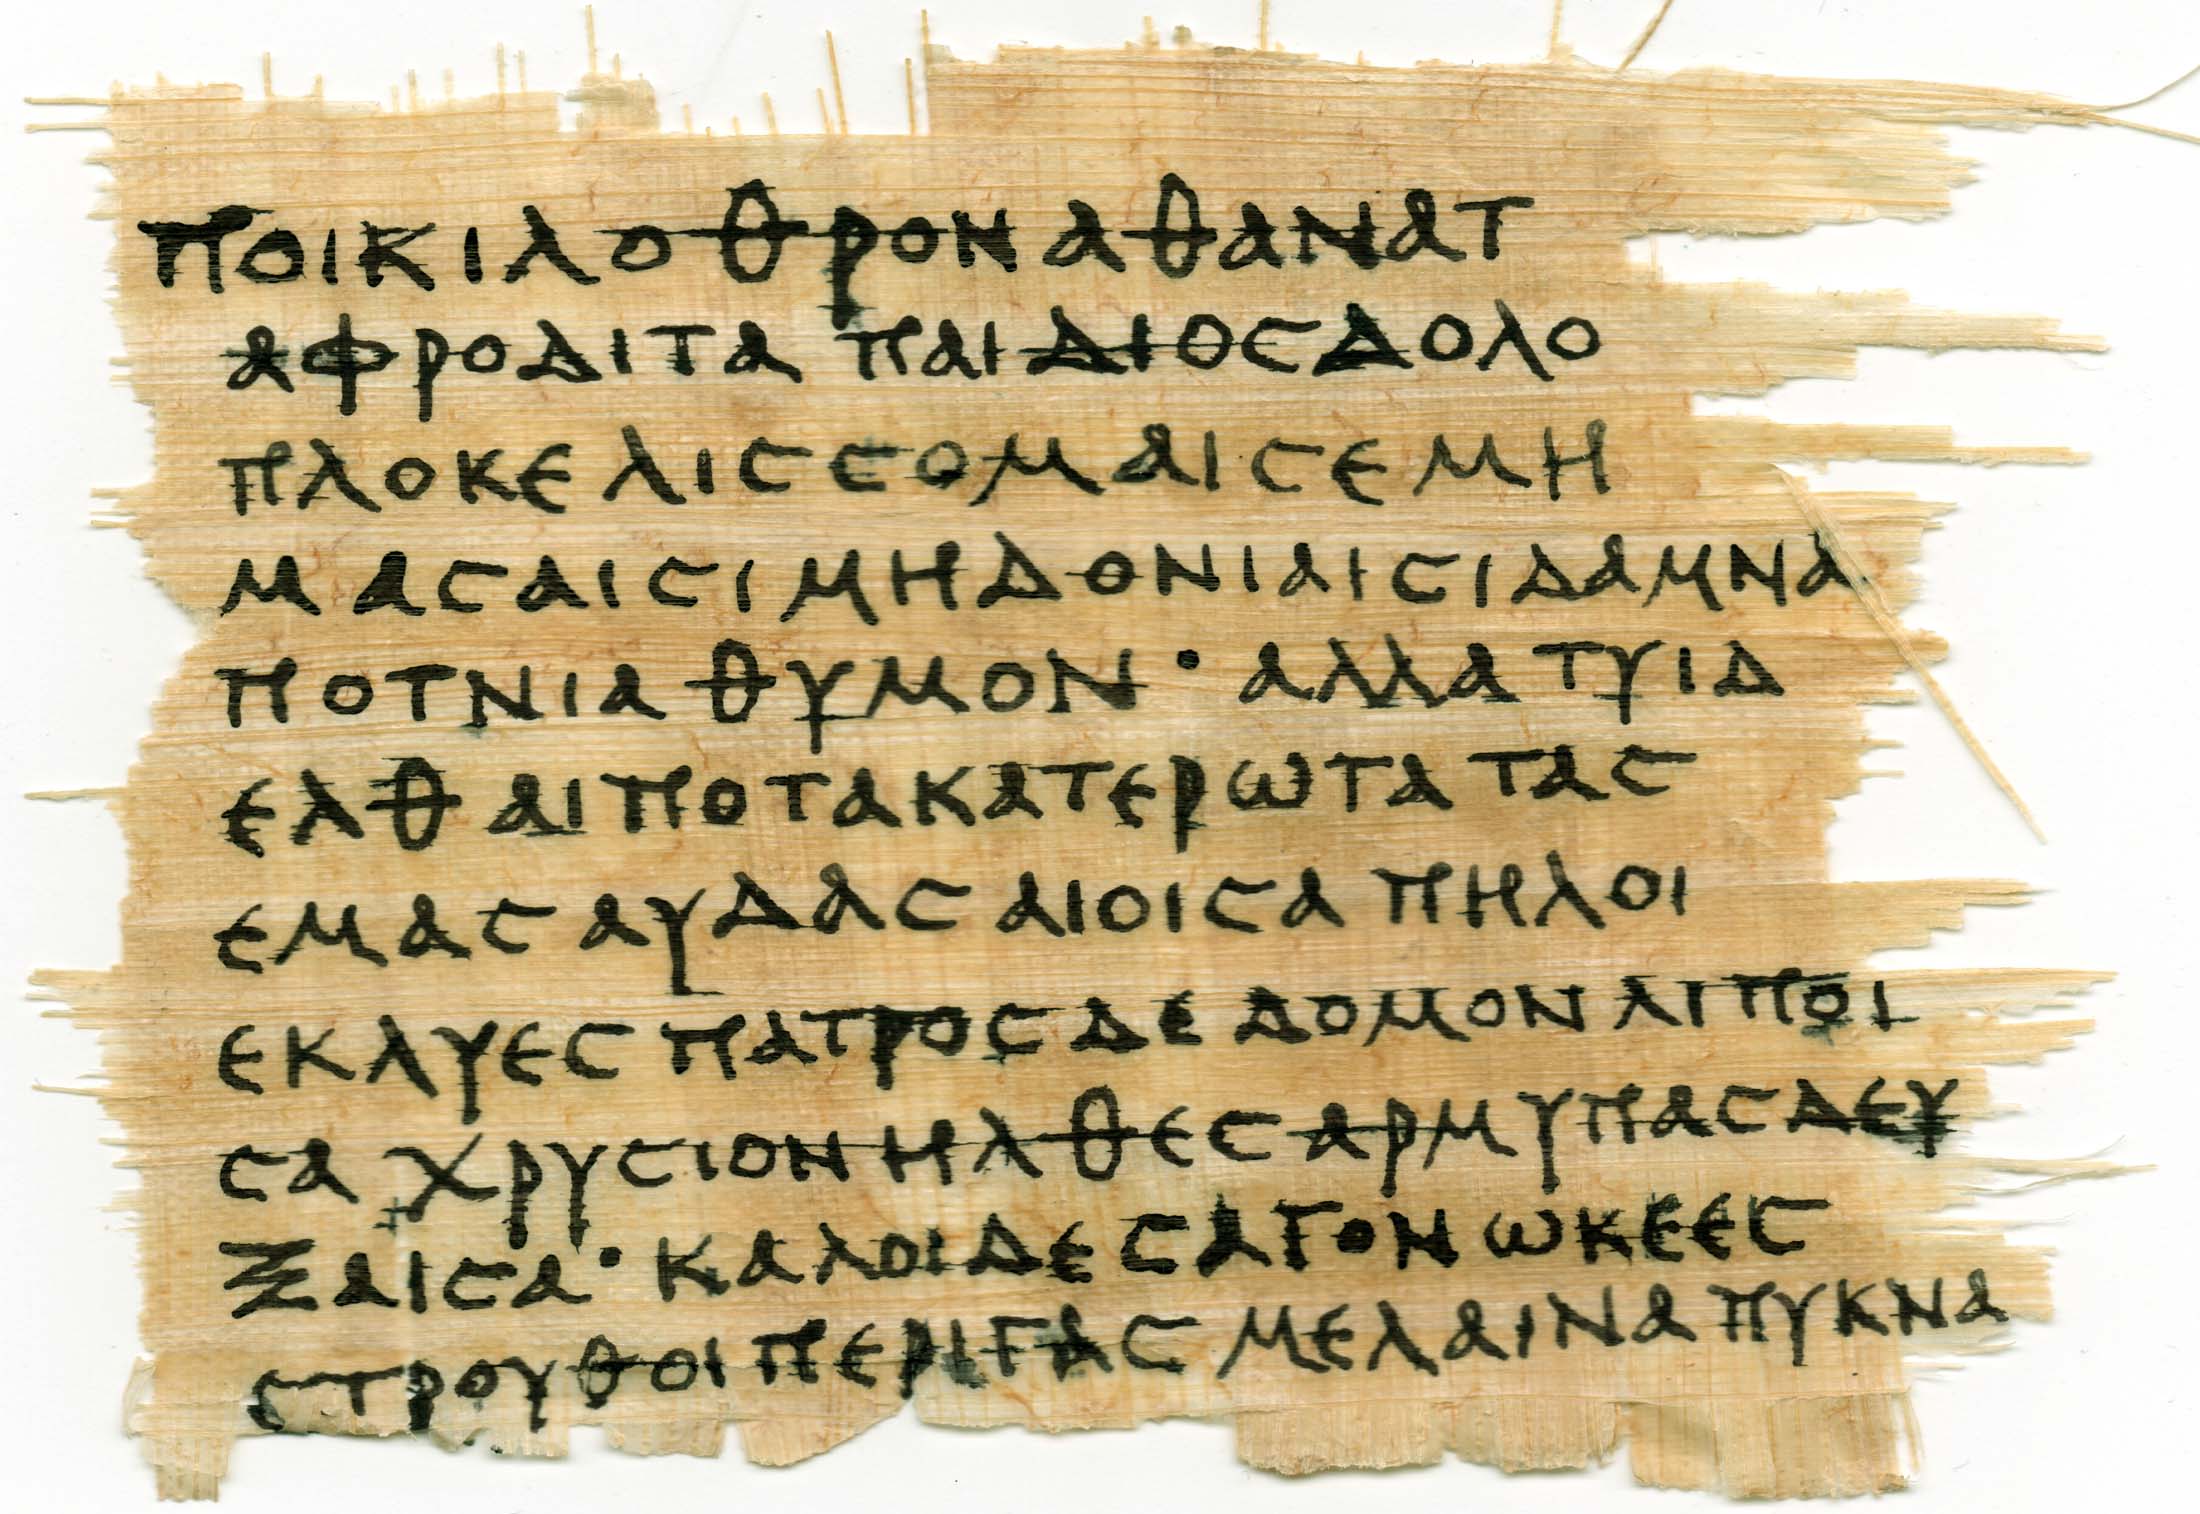 ποικιλοθρον αθανατ
αφροδιτα παιδιοσδολο
πλοκελισσομαισεμη
μασαισιμηδονιαισιδαμνα
ποτνιαθυμον· αλλατυιδ
ελθαιποτακατερωτατασ
εμασαυδασαιοισαπηλοι
εκλυεσπατροσδεδομονλιποι
σαχρυσιονηλθεσαρμυπασδευ
ξαισα· καλοιδεσαγονωκεεσ
στρουθοιπεριγασμελαιναπυκνα